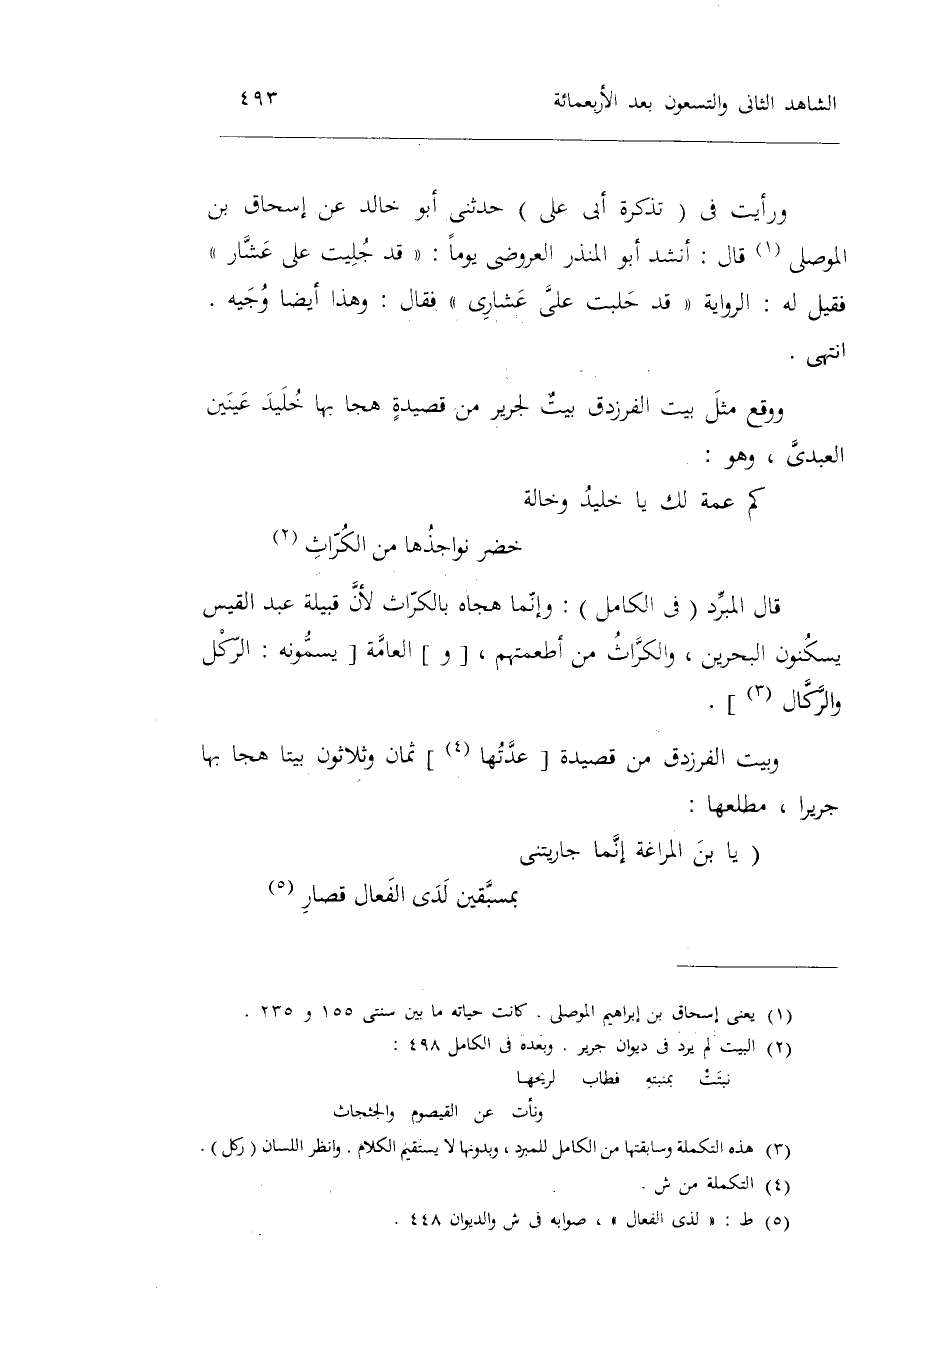 الشاهد الثانى والتسعون بعد الأربعمائة ٤٩٣
ورأيت فى ( تذكرة أبى على ) حدثنى أبو خالد عن إسحاق بن
الموصلى (١) قال : أنشد أبو المنذر العروضى يوماً : « قد جُلِيت على عَشَّار »
فقيل له : الرواية « قد حَلبت علىَّ عَشارِى » فقال : وهذا أيضا وُجَيه .
انتهى .
ووقع مثلَ بيت الفرزدق بيتٌ لجرير من قصيدةٍ هجا بها خُلَيدَ عَينَين
العبدىَّ ، وهو :
كم عمة لك يا خليدُ وخالة
خضر نواجذُها من الكُرّاثِ (٢)
قال المبرِّد ( فى الكامل ) : وإنّما هجاه بالكرّاث لأنَّ قبيلة عبد القيس
يسكُنون البحرين ، والكرَّاثُ من أطعمتهم ، [ و ] العامَّة [ يسمُّونه : الرّكْل
والرَّكَّال (٣) ] .
وبيت الفرزدق من قصيدة [ عدَّتُها (٤) ] ثمان وثلاثون بيتا هجا بها
جريرا ، مطلعها :
( يا بنَ المراغة إنَّما جاريتنى
بمسبَّقين لَدَى الفَعال قصارِ (٥)
(١) يعنى إسحاق بن إبراهيم الموصلى . كانت حياته ما بين سنتى ١٥٥ و ٢٣٥ .
(٢) البيت لم يرد فى ديوان جرير . وبعده فى الكامل ٤٩٨ :
نبتَتْ بمنبتهِ فطاب لريحها
ونأت عن القيصوم والجثجاث
(٣) هذه التكملة وسابقتها من الكامل للمبرد ، وبدونها لا يستقيم الكلام . وانظر اللسان ( ركل ) .
(٤) التكملة من ش .
(٥) ط : « لذى الفعال » ، صوابه فى ش والديوان ٤٤٨ .